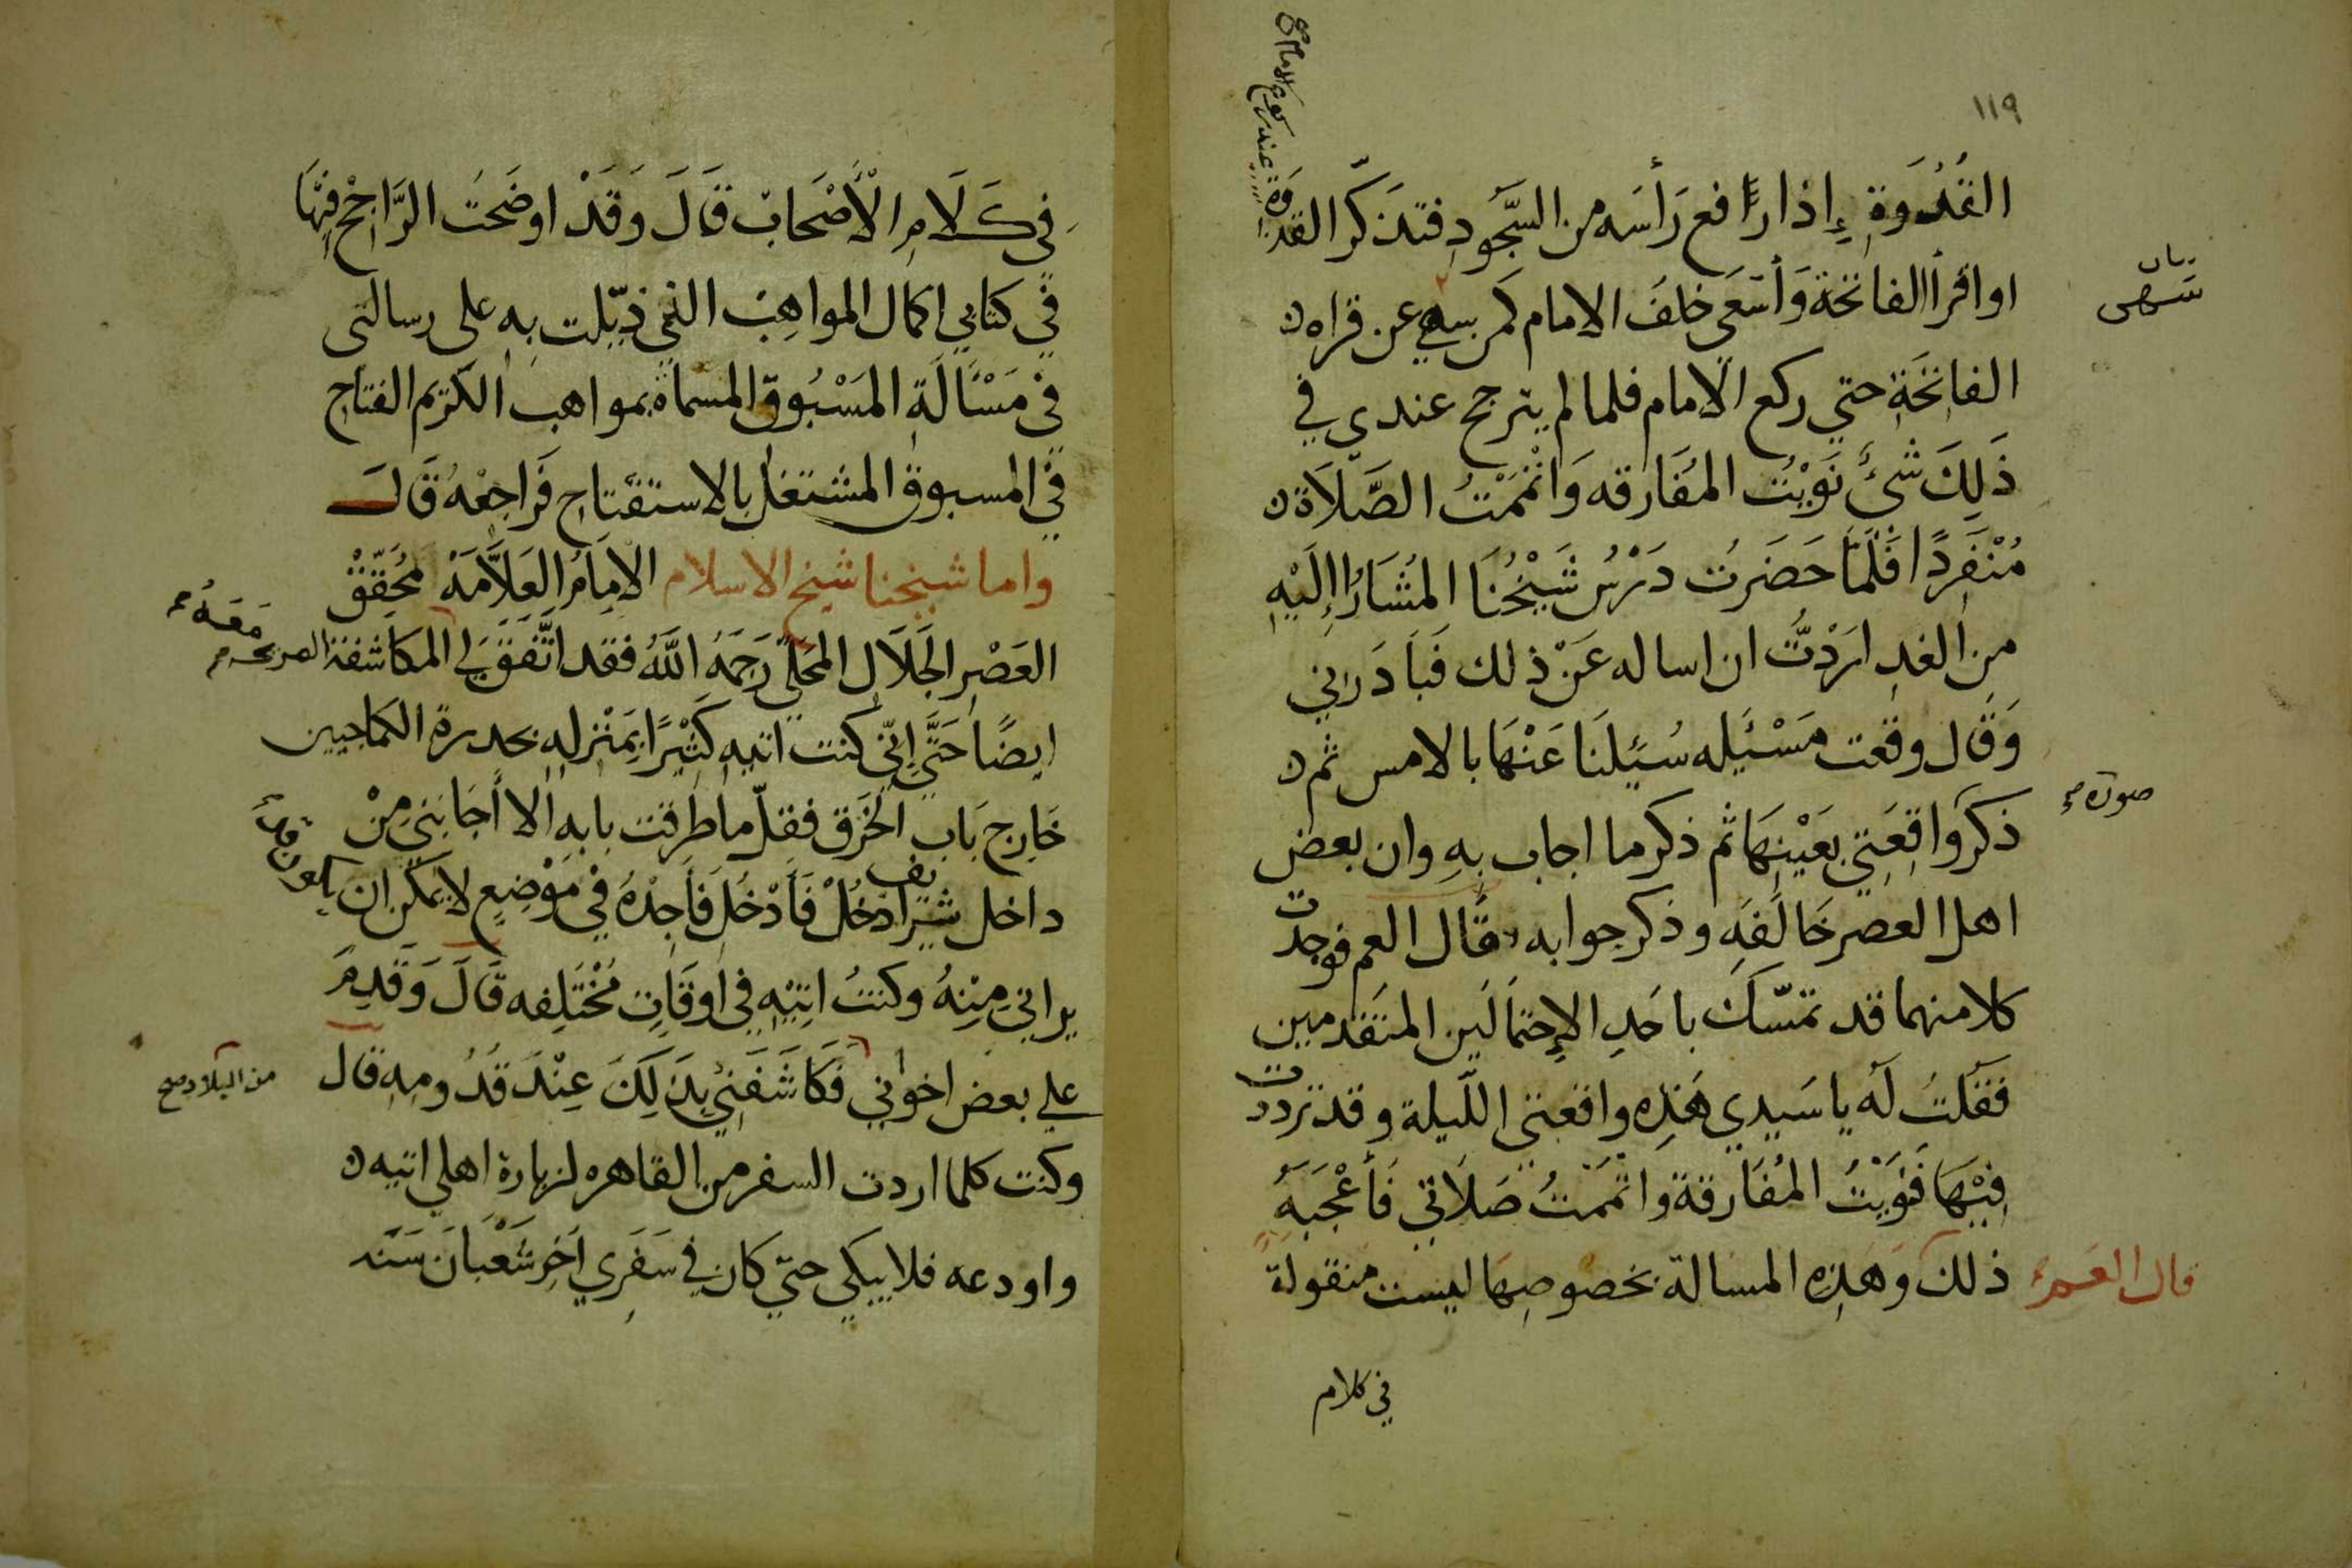 ١١٩
القُدْوَةِ إذا رافع رَأسَه من السُّجُودِ فتذكّر القدوة عند ركوع الامام صح
او اقرأ الفاتحة وَأسَعَى خلفَ الامام كمن سهى عن قراه
بيان سَهى
الفاتحَةِ حتي ركع الامام فلما لم يترجح عندي في
ذَلِكَ شئٌ نَوَيْتُ المُفَارقه وَاتْمَمْتُ الصَّلاَة
مُنْفَرِدًا فَلَمَّا حَضَرتُ دَرْسُ شَيْخُنَا المُشَارُ إِلَيْهِ
مِن الغدِ ارَدْتُ ان اساله عَنْ ذلك فَبَادَرني
وَقَال وقعت مَسْئَيله سُئِيلنَا عَنْهَا بالامس ثم
صورة صح
ذكر وَاقِعَتِي بعَيْنِهَا ثم ذكر ما اجاب بهِ وان بعض
اهل العصر خَالَفَه وذكر جوابه قال العم فوجدت
كلا منهما قد تمسّكَ باحَدِ الإحتمَالَين المتقدمين
فقلتُ لَه يا سَيدي هَذِه واقعتي اللّيلة وقد ترددت
فِيْهَا فنَوَيْتُ المُفَارقة واتْمَمْتُ صَلاَتي فَأعْجَبَهُ
قال العم ذلك وَهذِه المسالة بخصوصِهَا ليست منقولة
في كلام
في كَلَامِ الْأَصْحَابْ قَالَ وَقَدْ اوضَحتُ الرَّاجِحْ فِيْهَا
في كتابي اكمال المواهِب التي ذيّلت بِه على رسالتي
في مَسْألَةِ المَسْبُوق المسماة بمواهب الكريم الفتاح
في المسبوق المشتغل بالاستفتاح فَراجِعْهُ قَالَ
واما شيخنا شيخ الاسلام الاِمَامُ العَلاَّمَة مُحَقِّقْ
العَصْرِ الجَلَال المحَلّي رَحِمَهُ اللَّهُ فقد اتَّفَقَ لي مَعَهُ صح المكاشفة الصريحه
ايضًا حَتَّى اِنّي كنت اتيهِ كَثِيْرًا بِمَنْزلِهِ بحدرة الكماجيين
خَارِج بَاب الخَرَق فقلّ ما طرقت بابه الا أَجَابَنِي مِنْ
داخل شريف ادْخُلْ فَأَدْخُلَ فَأَجِدْهُ في مَوْضِعٍ لا يمكن ان يكون
يراني مِنْهُ وكنتُ اتِيْهِ في اوقَاتِ مُخْتَلِفه قَالَ وَقَدِمَ
علي بعض اخواني من البلاد صح فَكَاشَفَنِي بِذَلِكَ عِنْدَ قُدُومِهِ قال
وكنت كلما اردت السفر من القاهره لزيارة اهلي اتيه
واودعه فلا يبكي حتّي كان في سَفَرِي آخِر شَعْبَانَ سَنَه